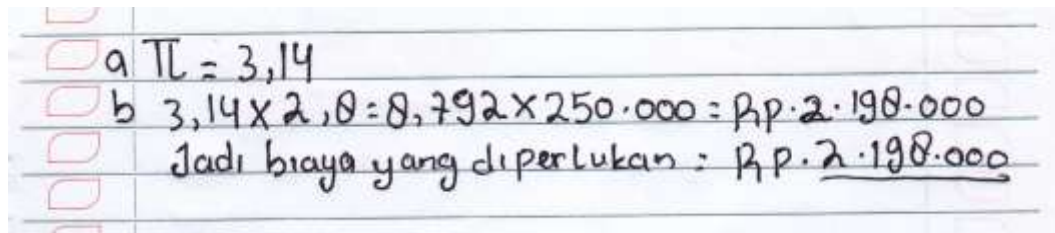 a π = 3,14
b 3,14 x 2,8 = 8,792 x 250.000 = Rp. 2.198.000
Jadi biaya yang diperlukan = Rp. 2.198.000